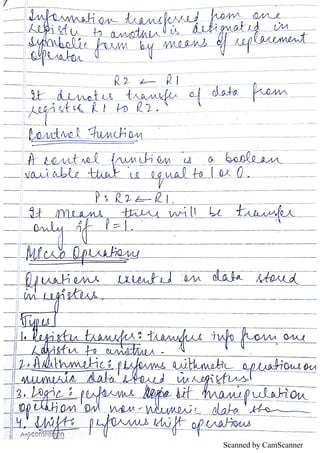 Information transferred from one
register to another is designated in
symbolic form by means of replacement
operator
R2 ← R1
It denotes transfer of data from
register R1 to R2.
Control Function
A control function is a boolean
variable that is equal to 1 or 0.
P: R2 ← R1.
It means, there will be transfer
only if P=1.
Micro Operations
Operations executed on data stored
in registers.
Types
1. Register transfer: transfers info from one
register to another.
2. Arithmetic: performs arithmetic operations on
numeric data stored in registers
3. Logic: performs bit manipulation
operation on non-numeric data
4. Shift: performs shift operations
Scanned by CamScanner